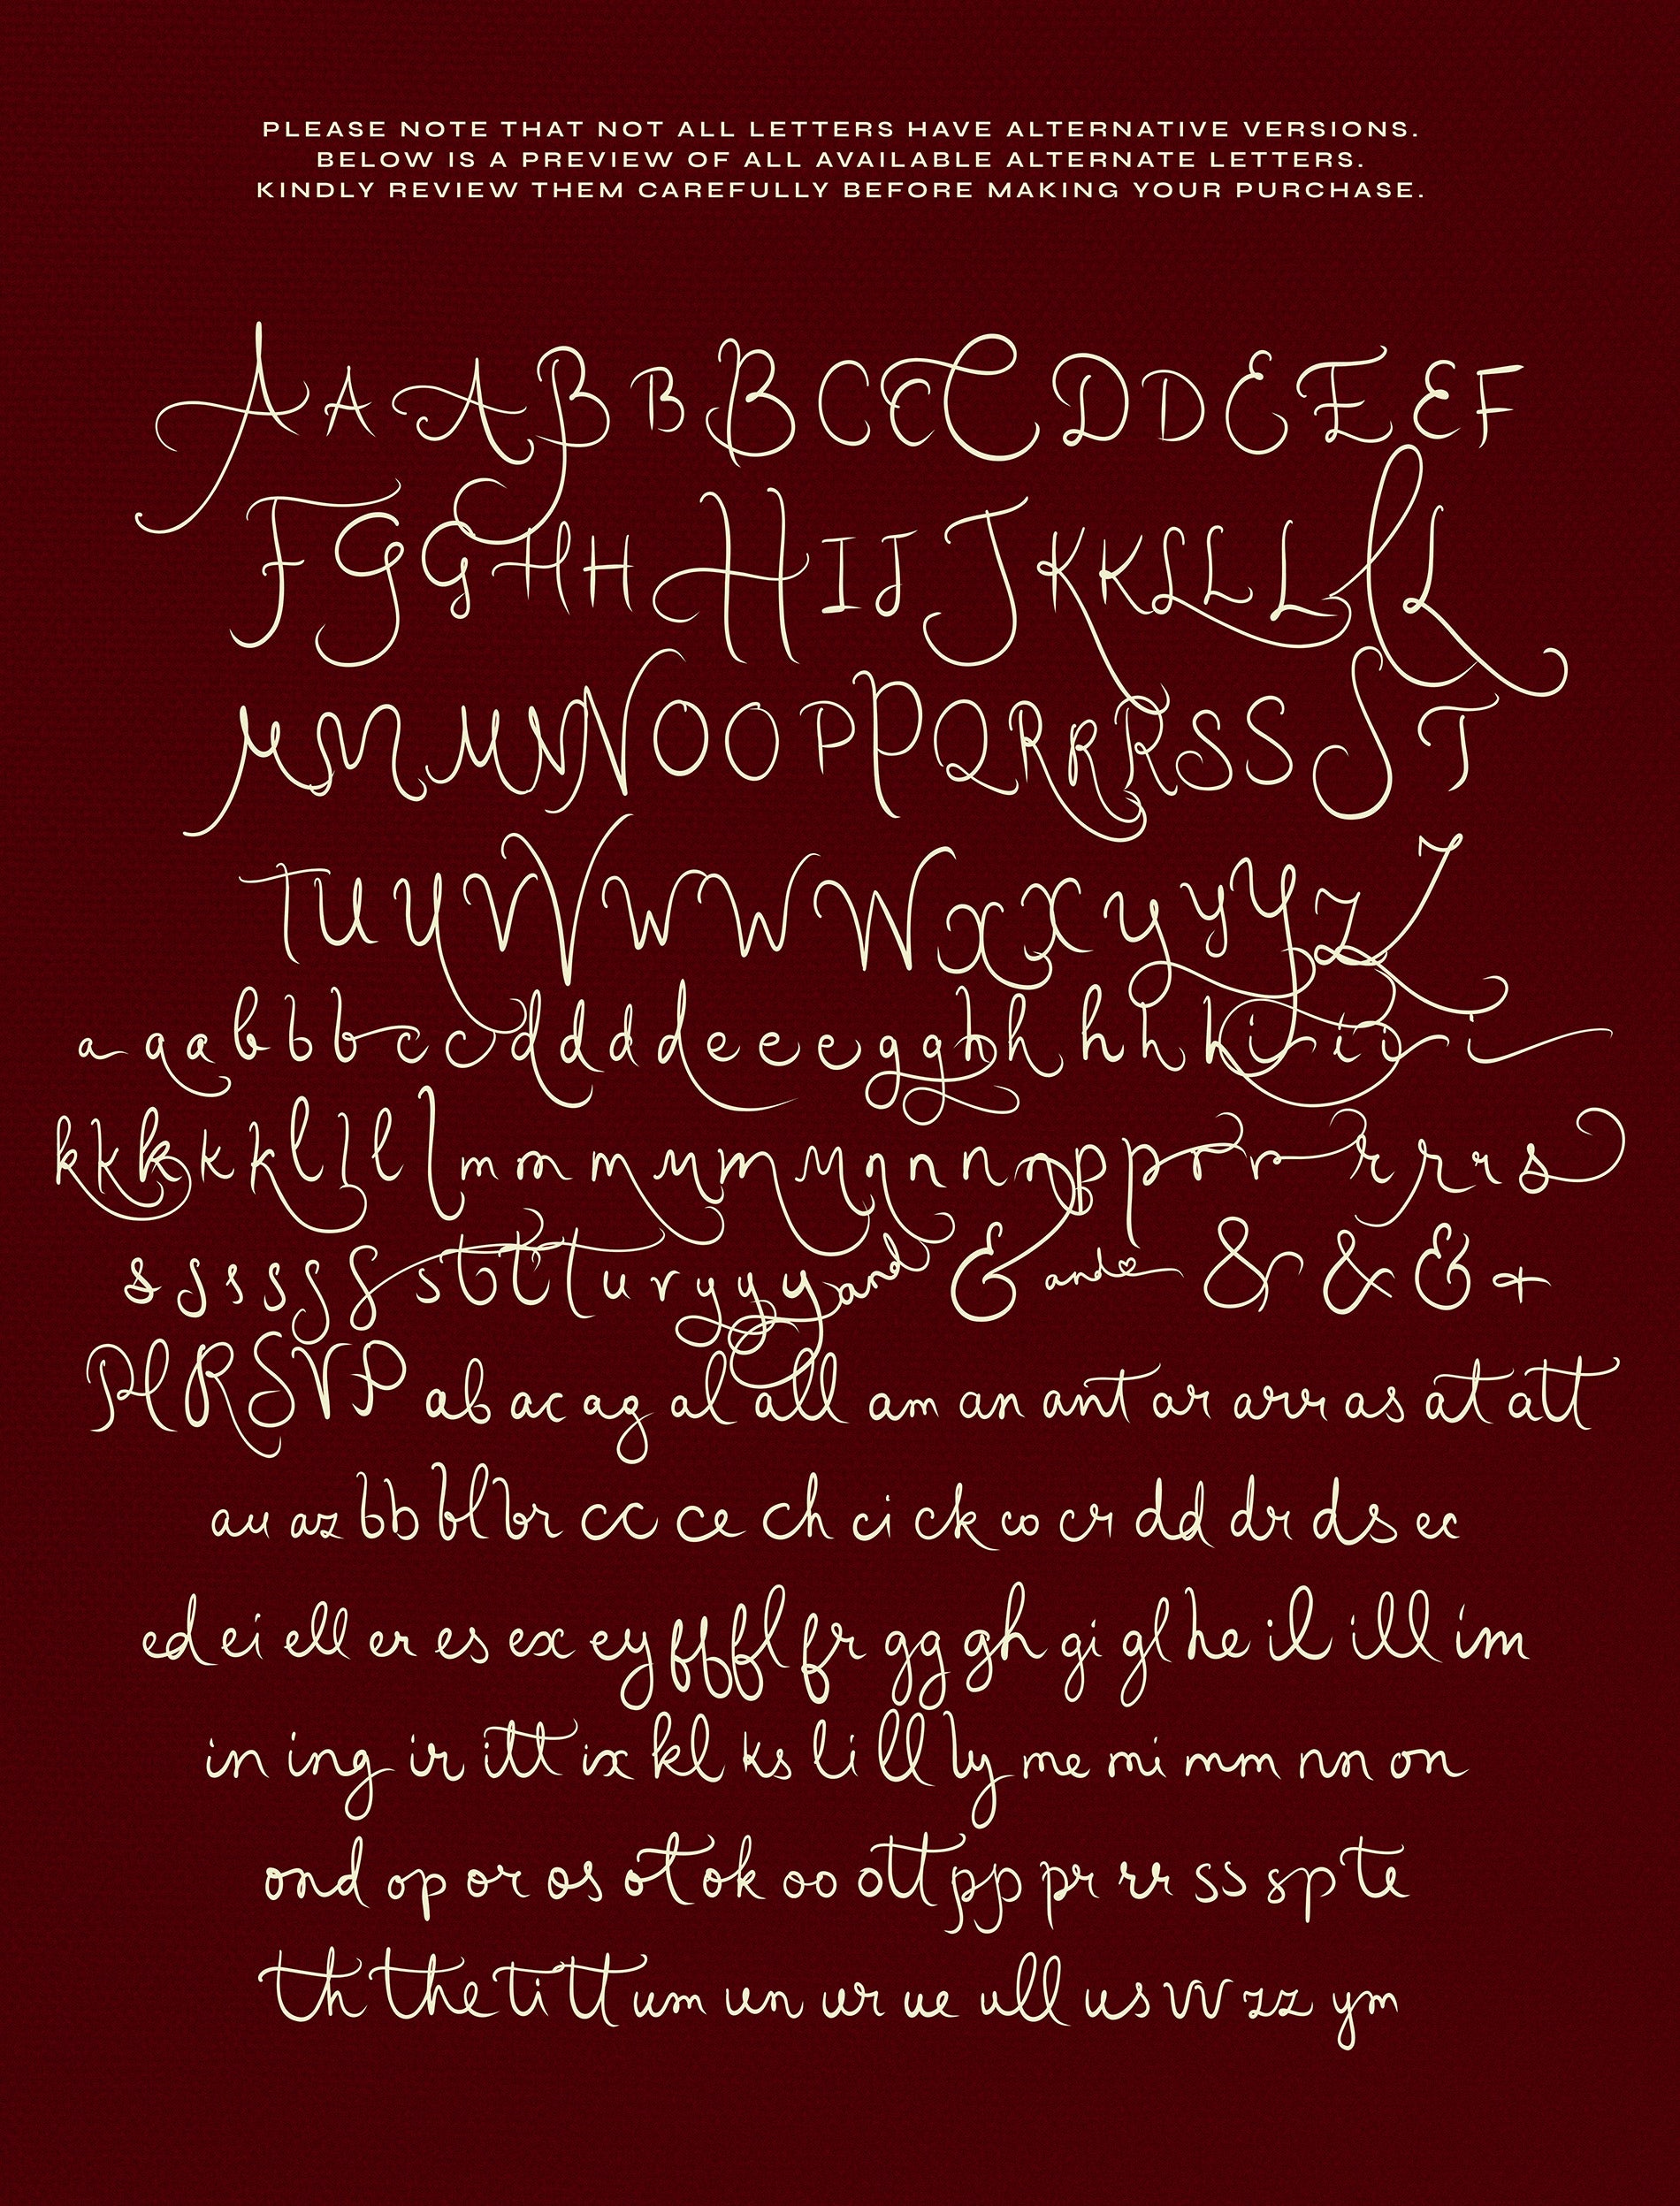 PLEASE NOTE THAT NOT ALL LETTERS HAVE ALTERNATIVE VERSIONS.
BELOW IS A PREVIEW OF ALL AVAILABLE ALTERNATE LETTERS.
KINDLY REVIEW THEM CAREFULLY BEFORE MAKING YOUR PURCHASE.
A A A B B B C C C D D E E E F
F G G H H H I J J K K L L L L L
M M M N N O O P P Q R R R S S S T
T U U V V W W W X X Y Y Y Z Z
a a a b b b c c d d d d e e e g g h h h h h i i i i
k k k k k l l l l m m m m m m n n n n p p r r r r r s
s s s s s s s t t t u r y y y and & and & & & +
Pl RSVP ab ac ag al all am an ant ar arr as at att
au az bb bl br cc ce ch ci ck co cr dd dr ds ec
ed ei ell er es ex ey ff ffl fr gg gh gi gl he il ill im
in ing ir itt ix kl ks li ll ly me mi mm nn on
ond op or os ot ok oo ott pp pr rr ss sp te
th the ti tt um un ur ue ull us vv zz ym